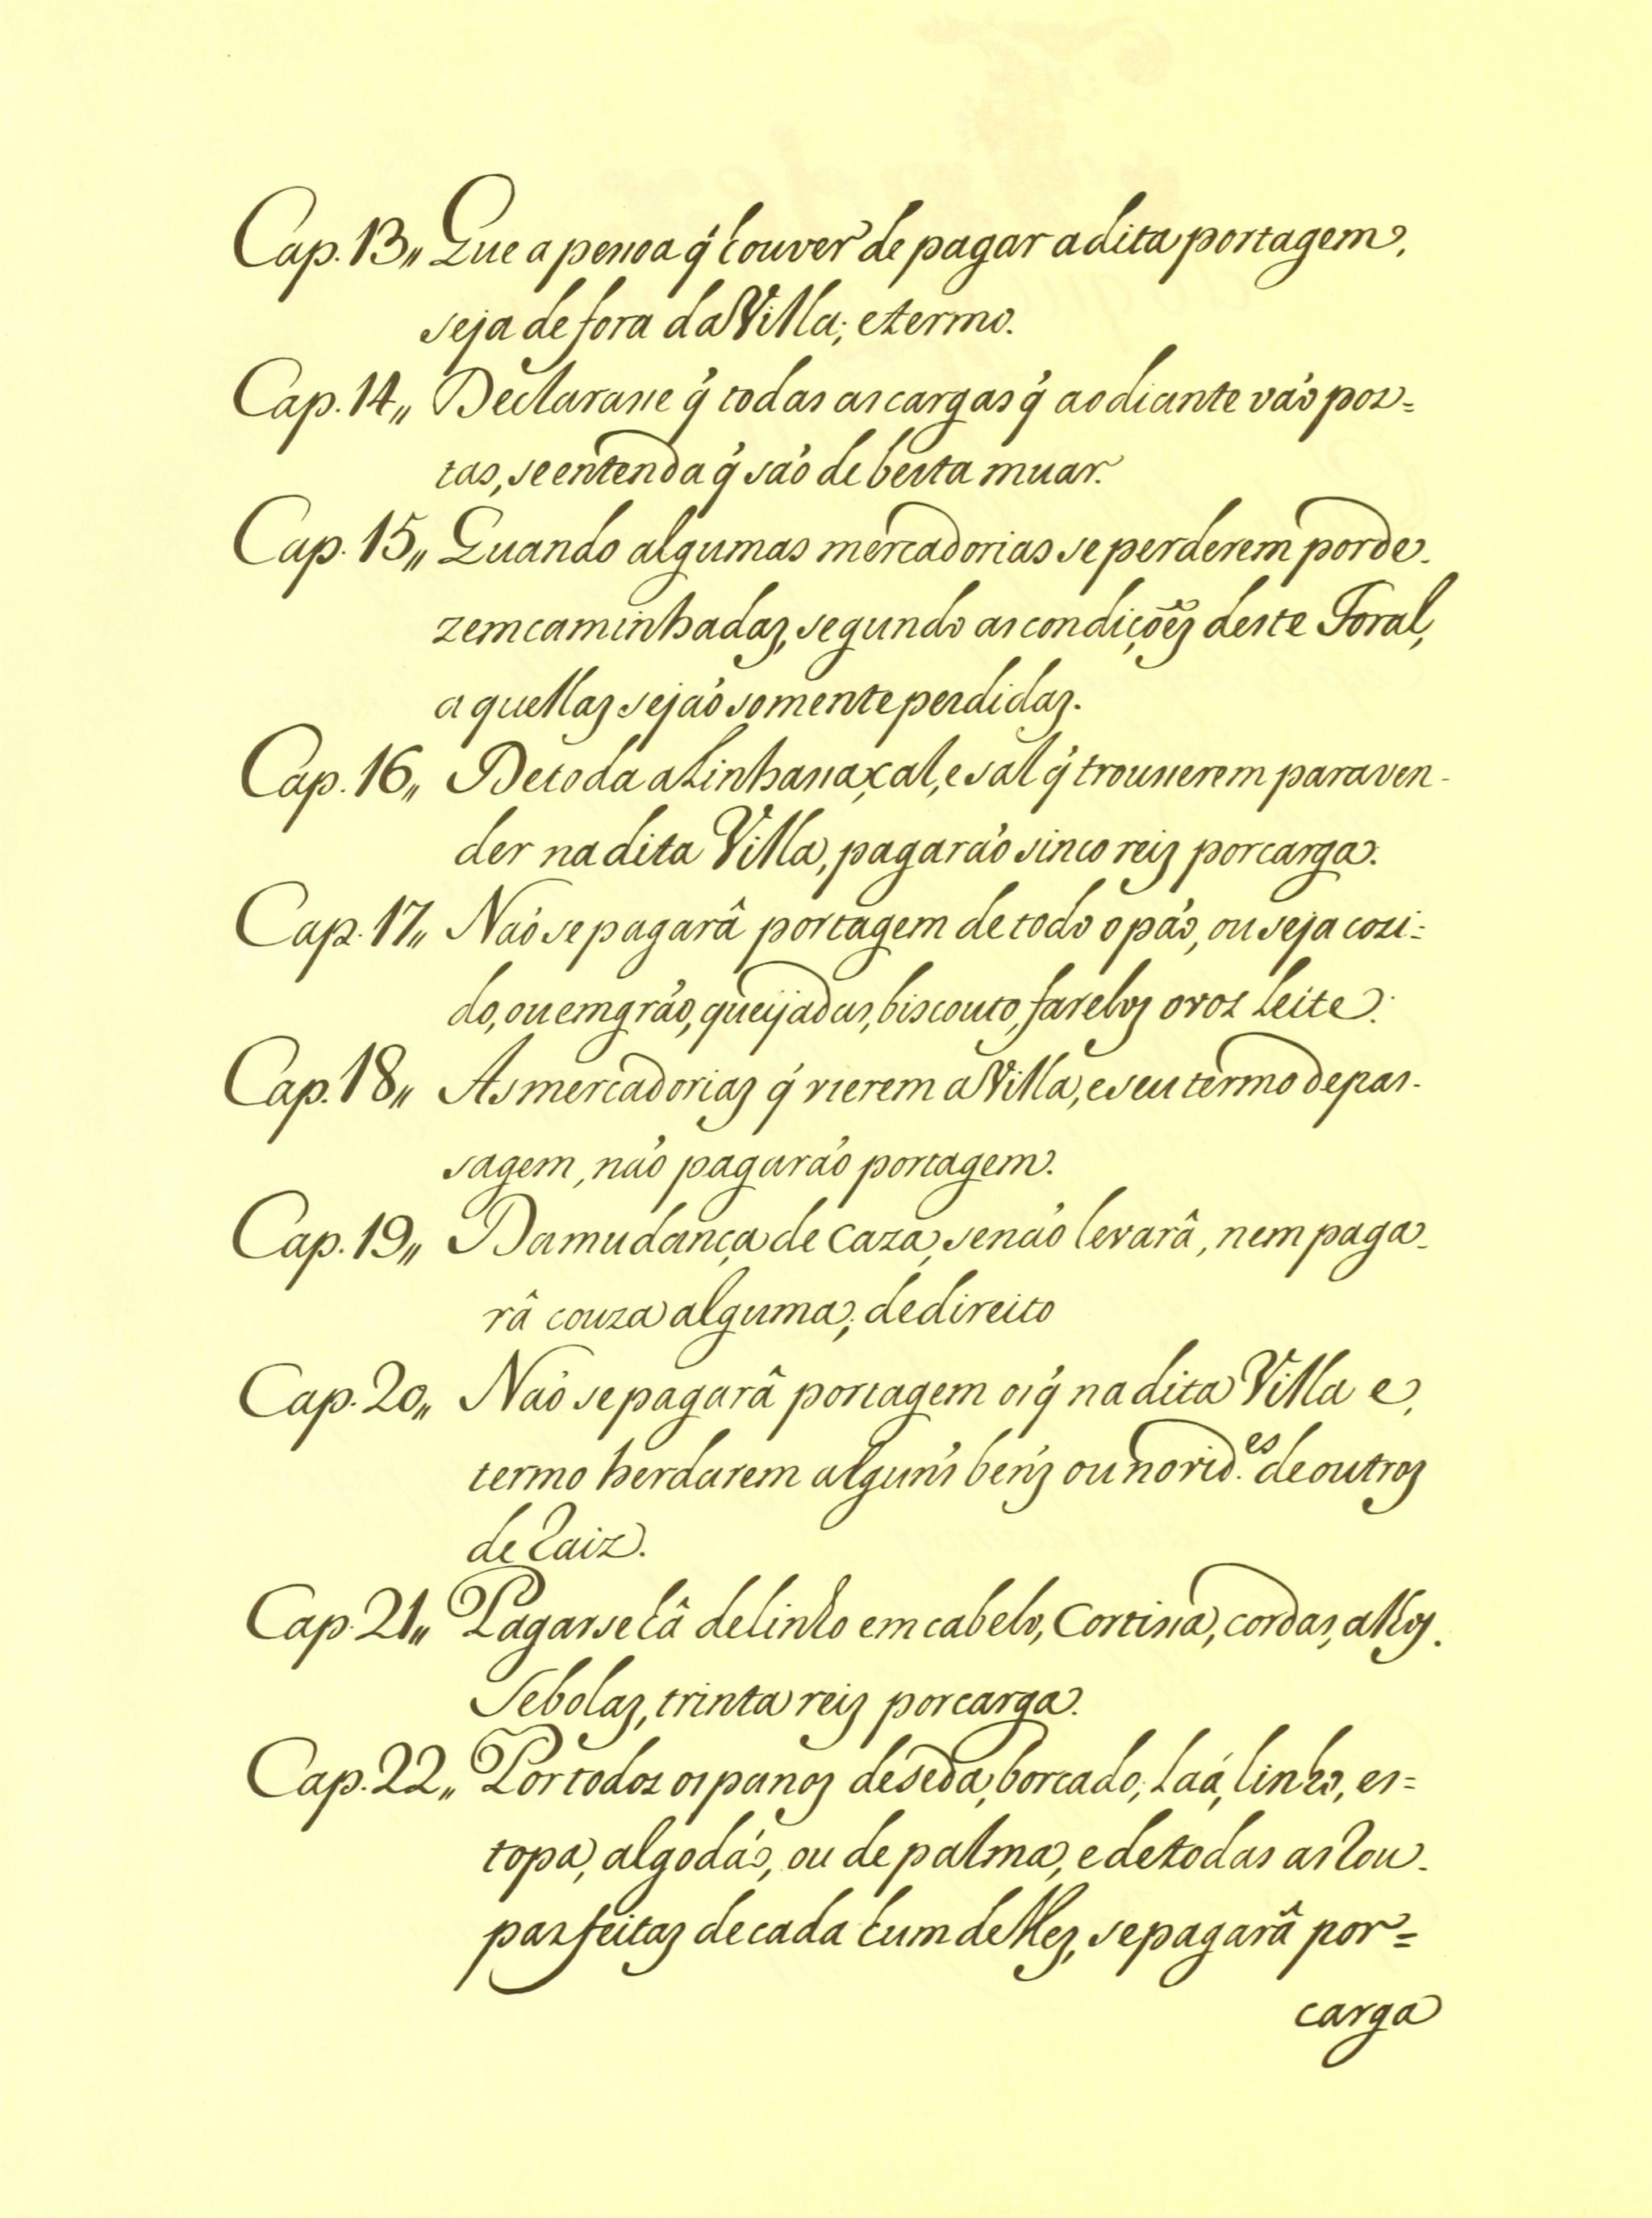 Cap. 13„ Que a pessoa q̃ houver de pagar a dita portagem,
seja de fora da Villa; e termo.
Cap. 14„ Declarasse q̃ todas as cargas q̃ ao diante vaõ pos=
tas, se entenda q̃ saõ de besta muar.
Cap. 15„ Quando algumas mercadorias se perderem por de-
zemcaminhadas, segundo as condiçoẽs deste Foral,
aquellas sejaõ somente perdidas.
Cap. 16„ De toda a Linhassa, cal, e sal q̃ trousserem para ven-
der na dita Villa, pagaraõ sinco reis por carga.
Cap. 17„ Naõ se pagarâ portagem de todo o paõ, ou seja cozi=
do, ou em graõ, queijadas, biscouto, farelos ovos Leite.
Cap. 18„ As mercadorias q̃ vierem a Villa, e seu termo de pas-
sagem, naõ pagaraõ portagem.
Cap. 19„ Da mudança de caza, se naõ levarâ, nem paga-
râ couza alguma; de direito
Cap. 20„ Naõ se pagarâ portagem os q̃ na dita Villa e,
termo herdarem alguñs beñs ou novid.es de outros
de Raiz.
Cap. 21„ Pagarse hâ de linho em cabelo, Cortissa, cordas, alhos.
Sebolas, trinta reis por carga.
Cap. 22„ Por todos os panos de seda, borcado, Laã, linho, es=
topa, algodaõ, ou de palma, e de todas as Rou-
pas feitas de cada hum delles, se pagarâ por=
carga